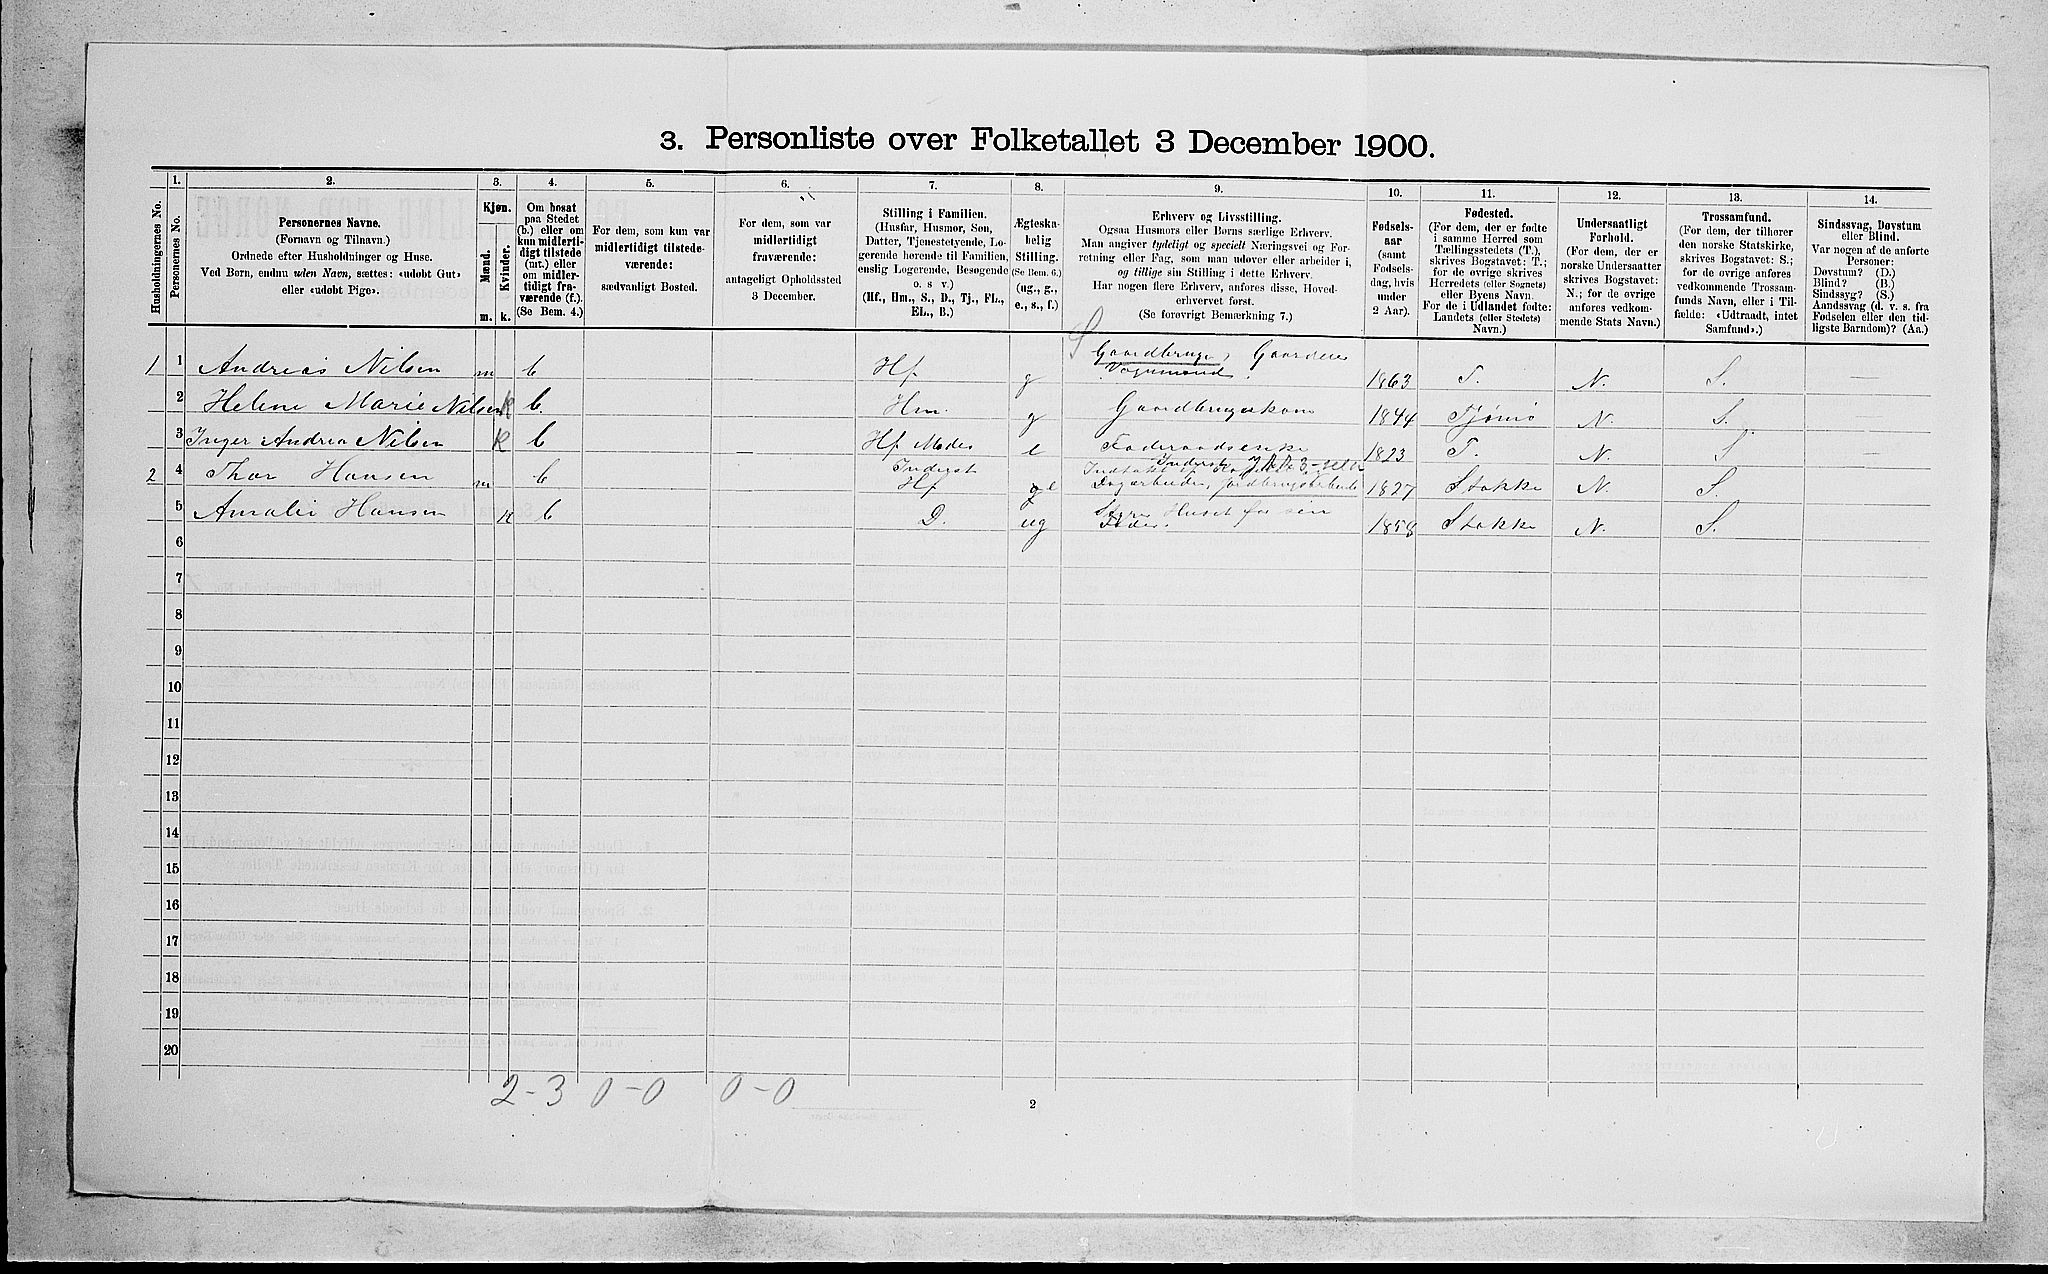 3. Personliste over Folketallet 3 December 1900.
Husholdningernes No.
1. Personernes No.
2. Personernes Navne. (Fornavn og Tilnavn.) Ordnede efter Husholdninger og Huse. Ved Børn, endnu uden Navn, sættes: «udøbt Gut» eller «udøbt Pige».
3. Kjøn. Mænd. m. Kvinder. k.
4. Om bosat paa Stedet (b.) eller om kun midlertidigt tilstede (mt.) eller om midlertidigt fraværende (f.). (Se Bem. 4.)
5. For dem, som kun var midlertidigt tilstedeværende: sædvanligt Bosted.
6. For dem, som var midlertidigt fraværende: antageligt Opholdssted 3 December.
7. Stilling i Familien. (Husfar, Husmor, Søn, Datter, Tjenestetyende, Logerende hørende til Familien, enslig Logerende, Besøgende o. s. v.) (Hf., Hm., S., D., Tj., FL., EL., B.)
8. Ægteskabelig Stilling. (Se Bem. 6.) (ug., g., e., s., f.)
9. Erhverv og Livsstilling. Ogsaa Husmors eller Børns særlige Erhverv. Man angiver tydeligt og specielt Næringsvei og Forretning eller Fag, som man udøver eller arbeider i, og tillige sin Stilling i dette Erhverv. Har nogen flere Erhverv, anføres disse, Hovederhvervet først. (Se forøvrigt Bemærkning 7.)
10. Fødselsaar (samt Fødselsdag, hvis under 2 Aar).
11. Fødested. (For dem, der er fødte i samme Herred som Tællingsstedets (T.), skrives Bogstavet: T.; for de øvrige skrives Herredets (eller Sognets) eller Byens Navn. For de i Udlandet fødte: Landets (eller Stedets) Navn.)
12. Undersaatligt Forhold. (For dem, der er norske Undersaatter skrives Bogstavet: N.; for de øvrige anføres vedkommende Stats Navn.)
13. Trossamfund. (For dem, der tilhører den norske Statskirke, skrives Bogstavet: S.; for de øvrige anføres vedkommende Trossamfunds Navn, eller i Tilfælde: «Udtraadt, intet Samfund».)
14. Sindssvag, Døvstum eller Blind. Var nogen af de anførte Personer: Døvstum? (D.) Blind? (B.) Sindssyg? (S.) Aandssvag (d. v. s. fra Fødselen eller den tidligste Barndom)? (Aa.)
1 1 Andreas Nilsen m b Hf g S Gaardbruger, 1863 T. N. S. —
2 Helene Marie Nilsen k b. Hm. g Gaardbrugerkone 1844 Tjømø N. S. —
3 Inger Andrea Nilsen k b Hf Moder e Føderaadsenke 1823 T. N. S. —
2 4 Thor Hansen m b Inderst Hf e Dagarbeider, Jordbrugsarbeide 1827 Stokke N. S.
5 Amalie Hansen k b D. ug Styrer Huset for sin Fader. 1858 Stokke N. S.
6
7
8
9
10
11
12
13
14
15
16
17
18
19
20
2 - 3 0 - 0 0 - 0
2